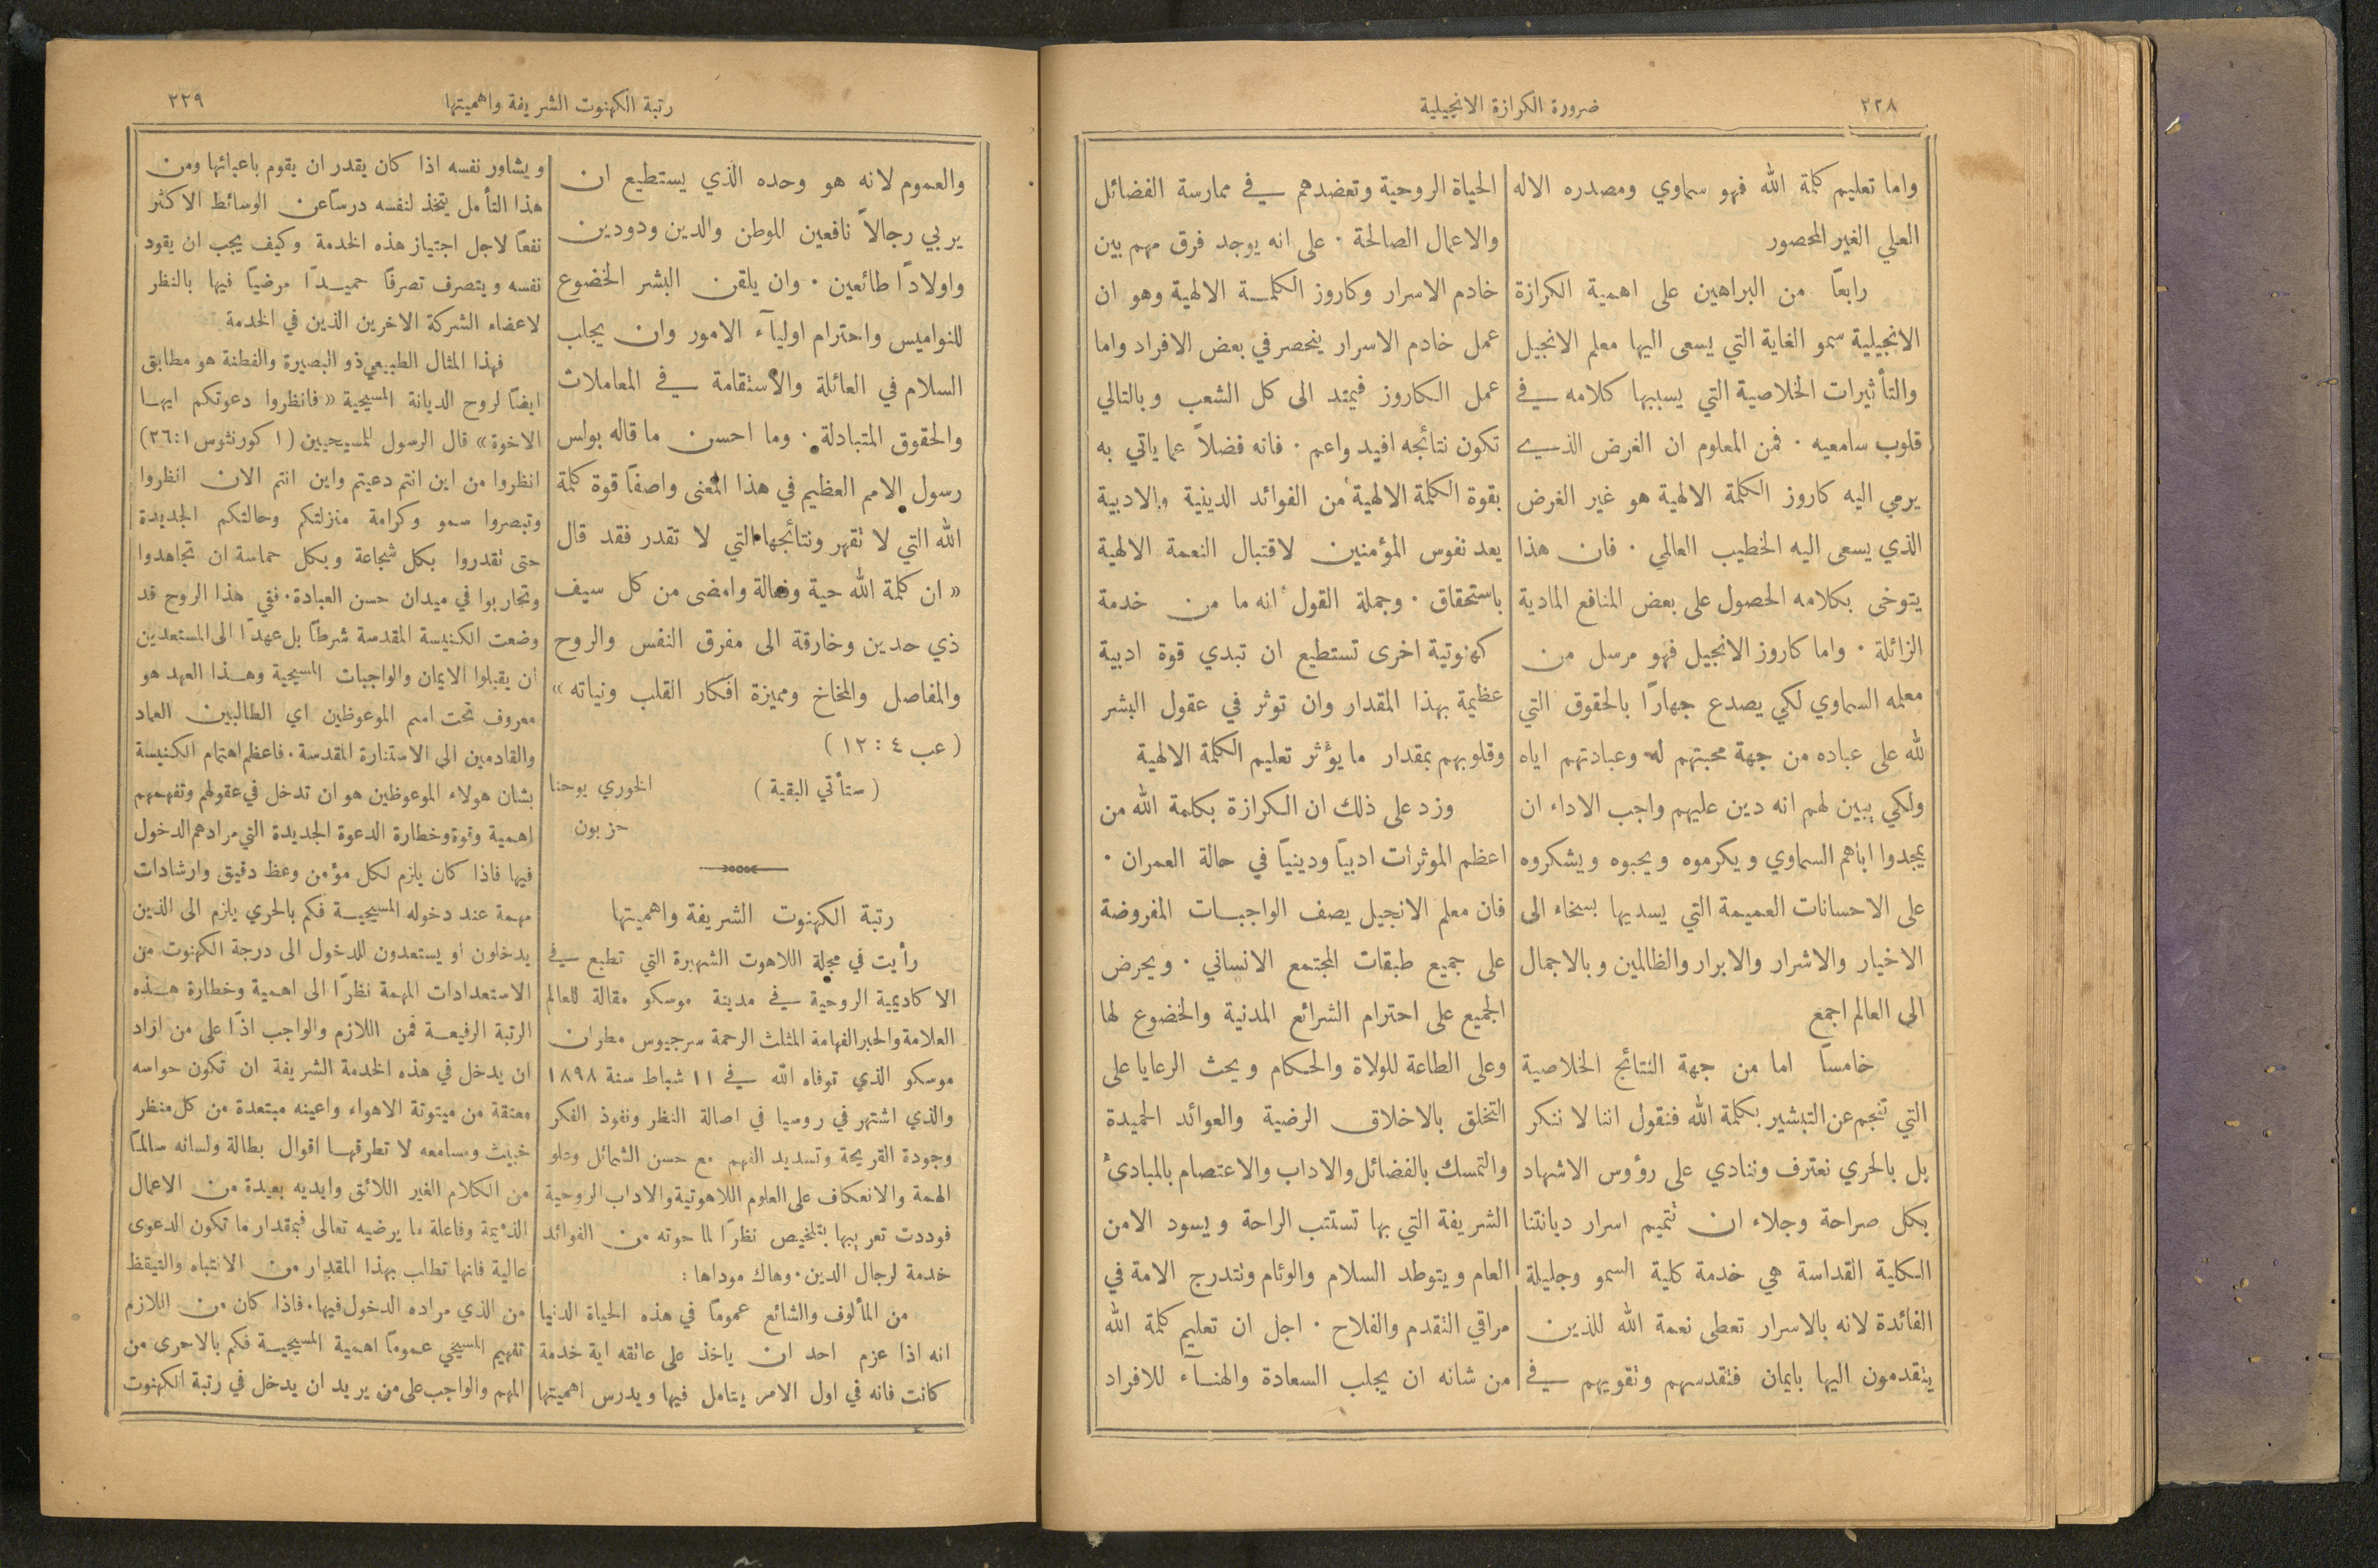 ٢٢٨
ضرورة الكرازة الانجيلية
واما تعليم كلمة الله فهو سماوي ومصدره الاله
العلي الغير المحصور
رابعاً من البراهين على اهمية الكرازة
الانجيلية سمو الغاية التي يسعى اليها معلم الانجيل
والتأثيرات الخلاصية التي يسببها كلامه في
قلوب سامعيه . فمن المعلوم ان الغرض الذي
يرمي اليه كاروز الكلمة الالهية هو غير الغرض
الذي يسعى اليه الخطيب العالمي . فان هذا
يتوخى بكلامه الحصول على بعض المنافع المادية
الزائلة . واما كاروز الانجيل فهو مرسل من
معلمه السماوي لكي يصدع جهاراً بالحقوق التي
لله على عباده من جهة محبتهم له وعبادتهم اياه
ولكي يبين لهم انه دين عليهم واجب الاداء ان
يمجدوا اباهم السماوي ويكرموه ويحبوه ويشكروه
على الاحسانات العميمة التي يسديها بسخاء الى
الاخيار والاشرار والابرار والظالمين وبالاجمال
الى العالم اجمع
خامساً اما من جهة النتائج الخلاصية
التي تنجم عن التبشير بكلمة الله فنقول اننا لا ننكر
بل بالحري نعترف وننادي على رؤوس الاشهاد
بكل صراحة وجلاء ان تتميم اسرار ديانتنا
الكلية القداسة هي خدمة كلية السمو وجليلة
الفائدة لانه بالاسرار تعطى نعمة الله للذين
يتقدمون اليها بايمان فتقدسهم وتقويهم في
الحياة الروحية وتعضدهم في ممارسة الفضائل
والاعمال الصالحة . على انه يوجد فرق مهم بين
خادم الاسرار وكاروز الكلمة الالهية وهو ان
عمل خادم الاسرار ينحصر في بعض الافراد واما
عمل الكاروز فيمتد الى كل الشعب وبالتالي
تكون نتائجه افيد واعم . فانه فضلاً عما ياتي به
بقوة الكلمة الالهية من الفوائد الدينية والادبية
يعد نفوس المؤمنين لاقتبال النعمة الالهية
باستحقاق . وجملة القول انه ما من خدمة
كهنوتية اخرى تستطيع ان تبدي قوة ادبية
عظيمة بهذا المقدار وان توثر في عقول البشر
وقلوبهم بمقدار ما يؤثر تعليم الكلمة الالهية
وزد على ذلك ان الكرازة بكلمة الله من
اعظم الموثرات ادبياً ودينياً في حالة العمران .
فان معلم الانجيل يصف الواجبات المفروضة
على جميع طبقات المجتمع الانساني . ويحرض
الجميع على احترام الشرائع المدنية والخضوع لها
وعلى الطاعة للولاة والحكام ويحث الرعايا على
التخلق بالاخلاق الرضية والعوائد الحميدة
والتمسك بالفضائل والاداب والاعتصام بالمبادئ
الشريفة التي بها تستتب الراحة ويسود الامن
العام ويتوطد السلام والوئام وتتدرج الامة في
مراقي التقدم والفلاح . اجل ان تعليم كلمة الله
من شانه ان يجلب السعادة والهناء للافراد
رتبة الكهنوت الشريفة واهميتها
٢٢٩
والعموم لانه هو وحده الذي يستطيع ان
يربي رجالاً نافعين للوطن والدين ودودين
واولاداً طائعين . وان يلقن البشر الخضوع
للنواميس واحترام اولياء الامور وان يجلب
السلام في العائلة والاستقامة في المعاملات
والحقوق المتبادلة . وما احسن ما قاله بولس
رسول الامم العظيم في هذا المعنى واصفاً قوة كلمة
الله التي لا تقهر ونتائجها التي لا تقدر فقد قال
« ان كلمة الله حية وفعالة وامضى من كل سيف
ذي حدين وخارقة الى مفرق النفس والروح
والمفاصل والمخاخ ومميزة افكار القلب ونياته »
( عب ٤ : ١٢ )
( ستأتي البقية ) الخوري يوحنا
حزبون
رتبة الكهنوت الشريفة واهميتها
رأيت في مجلة اللاهوت الشهيرة التي تطبع في
الاكاديمية الروحية في مدينة موسكو مقالة للعالم
العلامة والحبر الفهامة المثلث الرحمة سرجيوس مطران
موسكو الذي توفاه الله في ١١ شباط سنة ١٨٩٨
والذي اشتهر في روسيا في اصالة النظر ونفوذ الفكر
وجودة القريحة وتسديد الفهم مع حسن الشمائل وعلو
الهمة والانعكاف على العلوم اللاهوتية والاداب الروحية
فوددت تعريبها بتلخيص نظراً لما حوته من الفوائد
خدمة لرجال الدين . وهاك موداها :
من المألوف والشائع عموماً في هذه الحياة الدنيا
انه اذا عزم احد ان ياخذ على عاتقه اية خدمة
كانت فانه في اول الامر يتامل فيها ويدرس اهميتها
ويشاور نفسه اذا كان يقدر ان يقوم باعبائها ومن
هذا التأمل يتخذ لنفسه درساً عن الوسائط الاكثر
نفعاً لاجل اجتياز هذه الخدمة وكيف يجب ان يقود
نفسه ويتصرف تصرفاً حميداً مرضياً فيها بالنظر
لاعضاء الشركة الاخرين الذين في الخدمة
فهذا المثال الطبيعي ذو البصيرة والفطنة هو مطابق
ايضاً لروح الديانة المسيحية « فانظروا دعوتكم ايها
الاخوة » قال الرسول للمسيحيين ( ١ كورنثوس ١:٢٦ )
انظروا من اين انتم دعيتم واين انتم الان انظروا
وتبصروا سمو وكرامة منزلتكم وحالتكم الجديدة
حتى تقدروا بكل شجاعة وبكل حماسة ان تجاهدوا
وتحاربوا في ميدان حسن العبادة . ففي هذا الروح قد
وضعت الكنيسة المقدسة شرطاً بل عهداً الى المستعدين
ان يقبلوا الايمان والواجبات المسيحية وهذا العهد هو
معروف تحت اسم الموعوظين اي الطالبين العماد
والقادمين الى الاستنارة المقدسة . فاعظم اهتمام الكنيسة
بشان هولاء الموعوظين هو ان تدخل في عقولهم وتفهمهم
اهمية وقوة وخطارة الدعوة الجديدة التي مرادهم الدخول
فيها فاذا كان يلزم لكل مؤمن وعظ دقيق وارشادات
مهمة عند دخوله المسيحية فكم بالحري يلزم الى الذين
يدخلون او يستعدون للدخول الى درجة الكهنوت من
الاستعدادات المهمة نظراً الى اهمية وخطارة هذه
الرتبة الرفيعة فمن اللازم والواجب اذاً على من اراد
ان يدخل في هذه الخدمة الشريفة ان تكون حواسه
معتقة من ميتوتة الاهواء واعينه مبتعدة من كل منظر
خبيث ومسامعه لا تطرقها اقوال بطالة ولسانه سالماً
من الكلام الغير اللائق وايديه بعيدة من الاعمال
الذميمة وفاعلة ما يرضيه تعالى فبمقدار ما تكون الدعوى
عالية فانها تطلب بهذا المقدار من الانتباه والتيقظ
من الذي مراده الدخول فيها . فاذا كان من اللازم
تفهيم المسيحي عموماً اهمية المسيحية فكم بالاحرى من
المهم والواجب على من يريد ان يدخل في رتبة الكهنوت